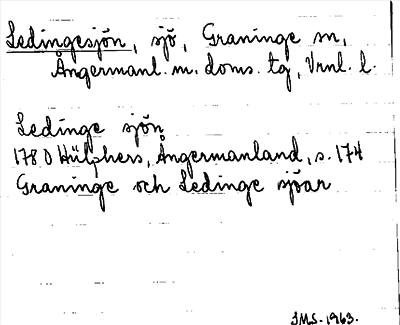 Ledingesjön, sjö, Graninge sn,
Ångermanl. m. doms. tg, Vrnl. l.
Ledinge sjön
1780 Hülphers, Ångermanland, s. 174
Graninge och Ledinge sjöar
IMS. 1963.